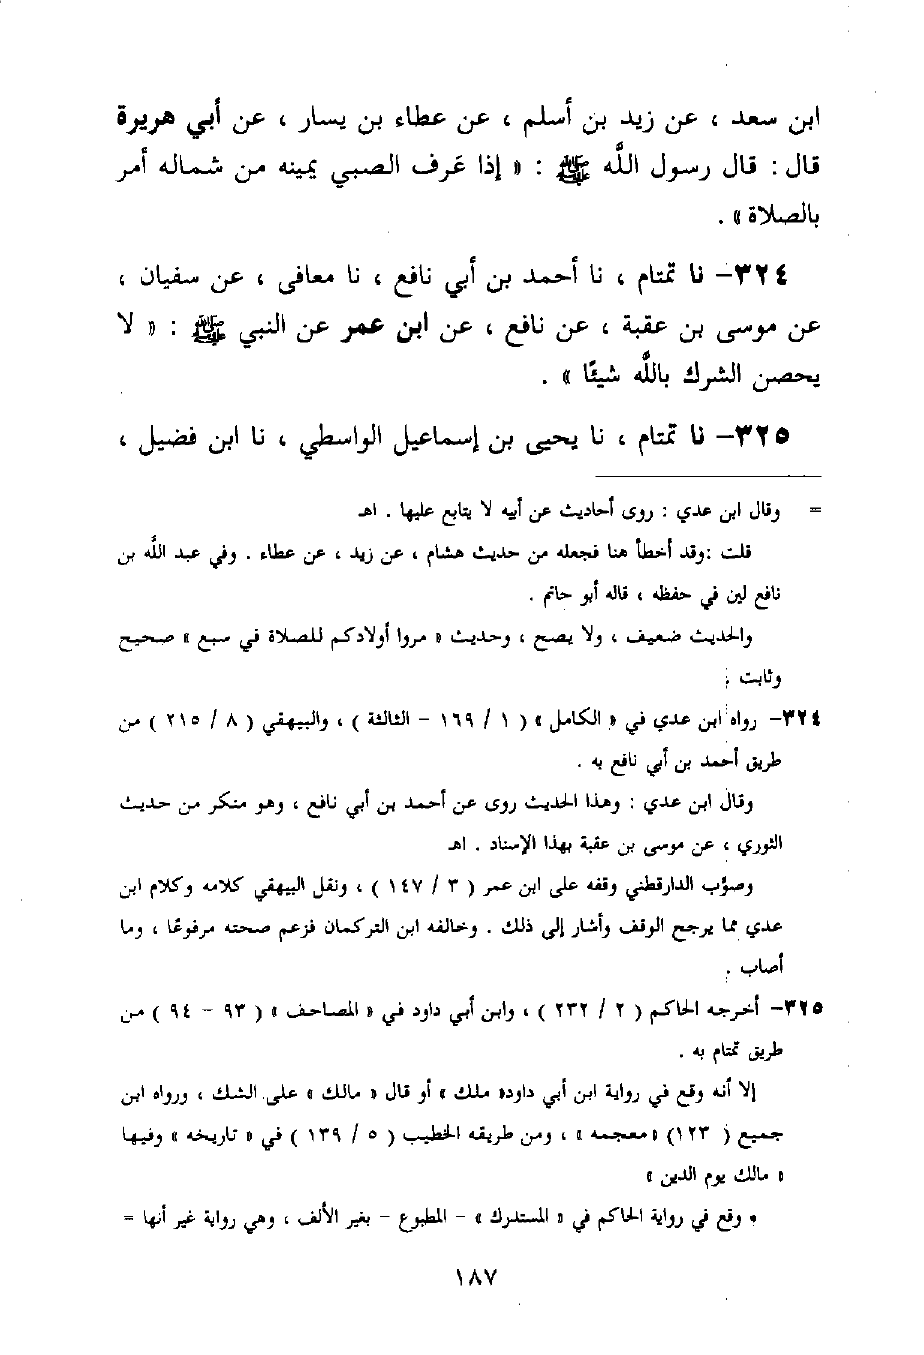 ابن سعد ، عن زيد بن أسلم ، عن عطاء بن يسار ، عن أبي هريرة
قال : قال رسول اللَّه ﷺ : « إذا عَرف الصبي يمينه من شماله أمر
بالصلاة » .
٣٢٤– نا تمتام ، نا أحمد بن أبي نافع ، نا معافى ، عن سفيان ،
عن موسى بن عقبة ، عن نافع ، عن ابن عمر عن النبي ﷺ : « لا
يحصن الشرك باللَّه شيئًا » .
٣٢٥– نا تمتام ، نا يحيى بن إسماعيل الواسطي ، نا ابن فضيل ،
= وقال ابن عدي : روى أحاديث عن أبيه لا يتابع عليها . اهـ
قلت :وقد أخطأ هنا فجعله من حديث هشام ، عن زيد ، عن عطاء . وفي عبد اللَّه بن
نافع لين في حفظه ، قاله أبو حاتم .
والحديث ضعيف ، ولا يصح ، وحديث « مروا أولادكم للصلاة في سبع » صحيح
وثابت .
٣٢٤– رواه ابن عدي في « الكامل » ( ١ / ١٦٩ – الثالثة ) ، والبيهقي ( ٨ / ٢١٥ ) من
طريق أحمد بن أبي نافع به .
وقال ابن عدي : وهذا الحديث روى عن أحمد بن أبي نافع ، وهو منكر من حديث
الثوري ، عن موسى بن عقبة بهذا الإسناد . اهـ
وصوَّب الدارقطني وقفه على ابن عمر ( ٣ / ١٤٧ ) ، ونقل البيهقي كلامه وكلام ابن
عدي مما يرجح الوقف وأشار إلى ذلك . وخالفه ابن التركمان فزعم صحته مرفوعًا ، وما
أصاب .
٣٢٥– أخرجه الحاكم ( ٢ / ٢٣٢ ) ، وابن أبي داود في « المصاحف » ( ٩٣ – ٩٤ ) من
طريق تمتام به .
إلا أنه وقع في رواية ابن أبي داود« ملك » أو قال « مالك » على الشك ، ورواه ابن
جميع ( ١٢٣) «معجمه » ، ومن طريقه الخطيب ( ٥ / ١٣٩ ) في « تاريخه » وفيها
« مالك يوم الدين »
• وقع في رواية الحاكم في « المستدرك » – المطبوع – بغير الألف ، وهي رواية غير أنها =
١٨٧